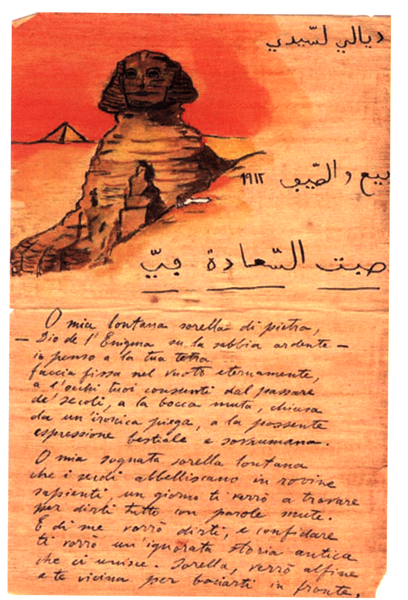 ديالي لسيدي
بيع و الصيف ١٩١٢
صبت السّعادة فيّ
O mia lontana sorella di pietra,
— Dio de l'Enigma su la sabbia ardente —
io penso a la tua tetra
faccia fissa nel vuoto eternamente,
a l'occhi tuoi consunti dal passare
de' secoli, a la bocca muta, chiusa
da un'ironica piega, a la possente
espressione bestiale e sovrumana.
O mia sognata sorella lontana
che i secoli abbelliscano in rovine
sapienti, un giorno ti verrò a trovare
per dirti tutto con parole mute.
E di me vorrò dirti, e confidare
ti vorrò un'ignorata storia antica
che ci unisce. Sorella, verrò alfine
a te vicina per baciarti in fronte,